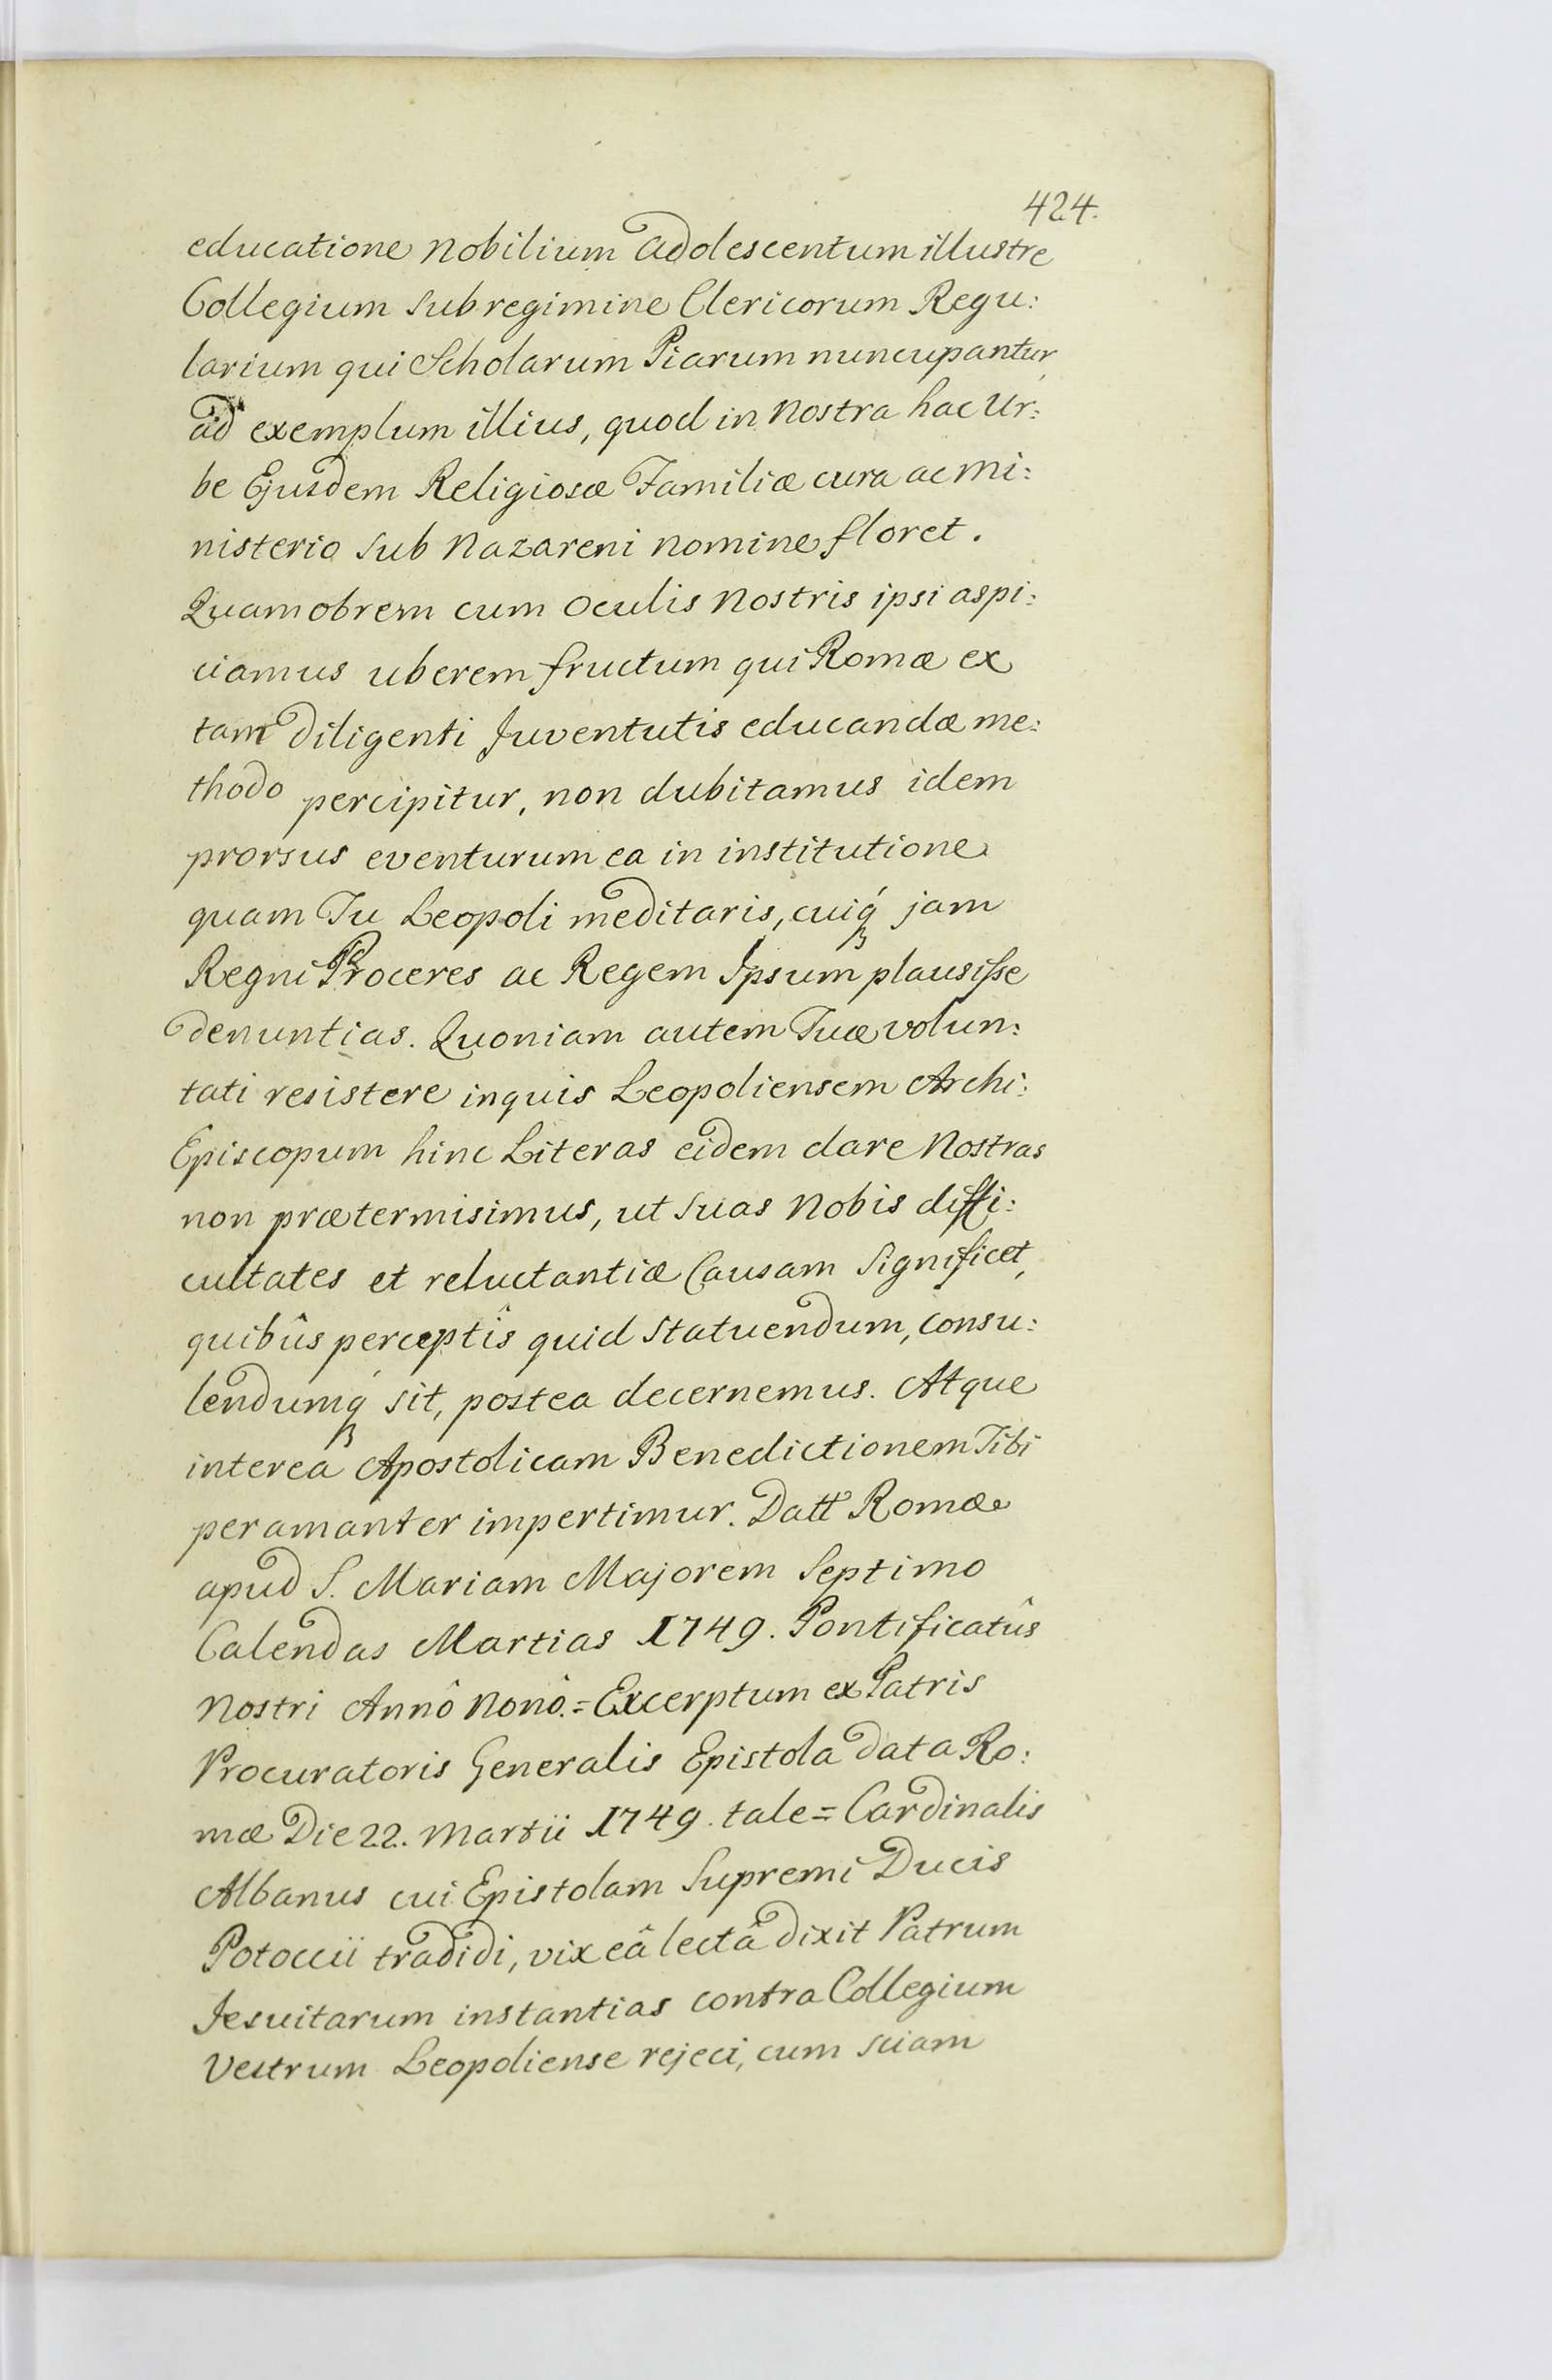 424.
educatione Nobilium adolescentum illustre
Collegium sub regimine Clericorum Regu:
larium qui Scholarum Piarum nuncupantur,
ad exemplum illius, quod in Nostra hac Ur:
be Ejusdem Religiosæ Familiæ cura ac mi:
nisterio sub Nazareni nomine floret.
Quamobrem cum oculis Nostris ipsi aspi:
ciamus uberem fructum qui Romæ ex
tam diligenti Juventutis educandæ me:
thodo percipitur, non dubitamus idem
prorsus eventurum ea in institutione
quam Tu Leopoli meditaris, cuiq́ʒ jam
Regni Proceres ac Regem Ipsum plausisse
denuntias. Quoniam autem Tuæ volun:
tati resistere inquis Leopoliensem Archi:
Episcopum hinc Literas eidem dare Nostras
non prætermisimus, ut suas Nobis diffi:
cultates et reluctantiæ Causam Significet,
quibûs perceptîs quid statuendum, consu:
lendumq́ʒ sit, postea decernemus. Atque
interea Apostolicam Benedictionem Tibi
peramanter impertimur. Datt Romæ
apud S. Mariam Majorem Septimo
Calendas Martias 1749. Pontificatûs
Nostri Annô Nonô.= Excerptum ex Patris
Procuratoris Generalis Epistola data Ro:
mæ Die 22. Martii 1749. tale= Cardinalis
Albanus cui Epistolam Supremi Ducis
Potoccii tradidi, vix eâ lectâ dixit Patrum
Jesuitarum instantias contra Collegium
Vestrum Leopoliense rejeci, cum sciam